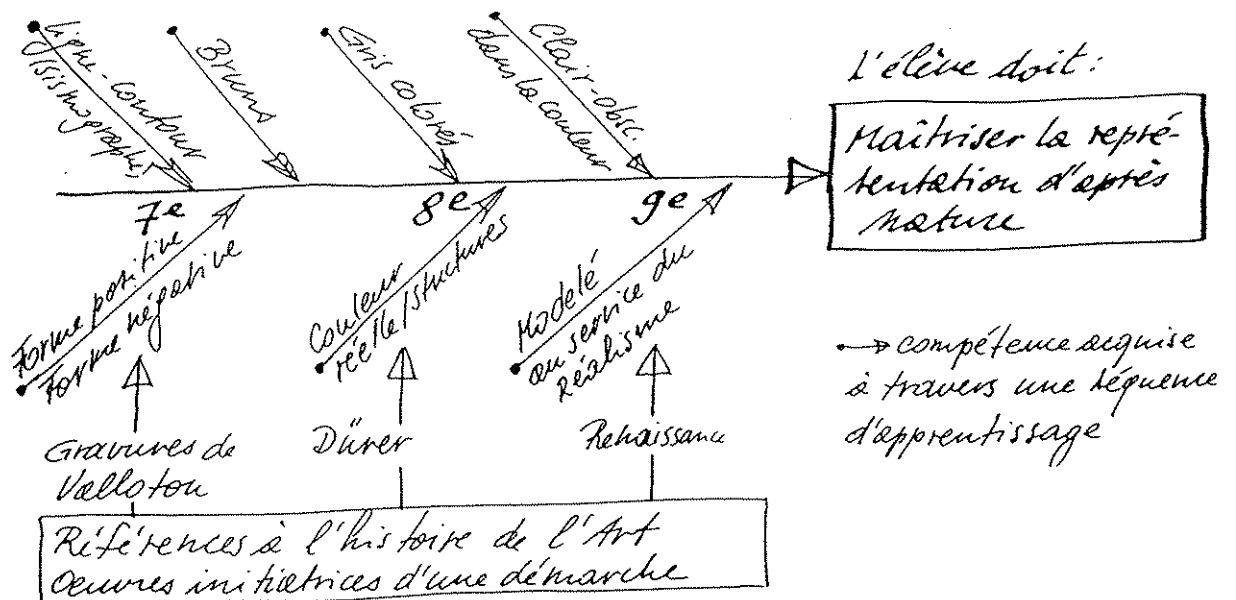 Ligne-contour
(sismographe)
Bruns
Gris colorés
Clair-obsc.
dans la couleur
L'élève doit:
Maîtriser la repré-
sentation d'après
nature
7e
8e
9e
Forme positive
Forme négative
Couleur
réelle/structures
Modelé
au service du
Réalisme
•→ compétence acquise
à travers une séquence
d'apprentissage
Gravures de
Valloton
Dürer
Renaissance
Références à l'histoire de l'Art
Oeuvres initiatrices d'une démarche